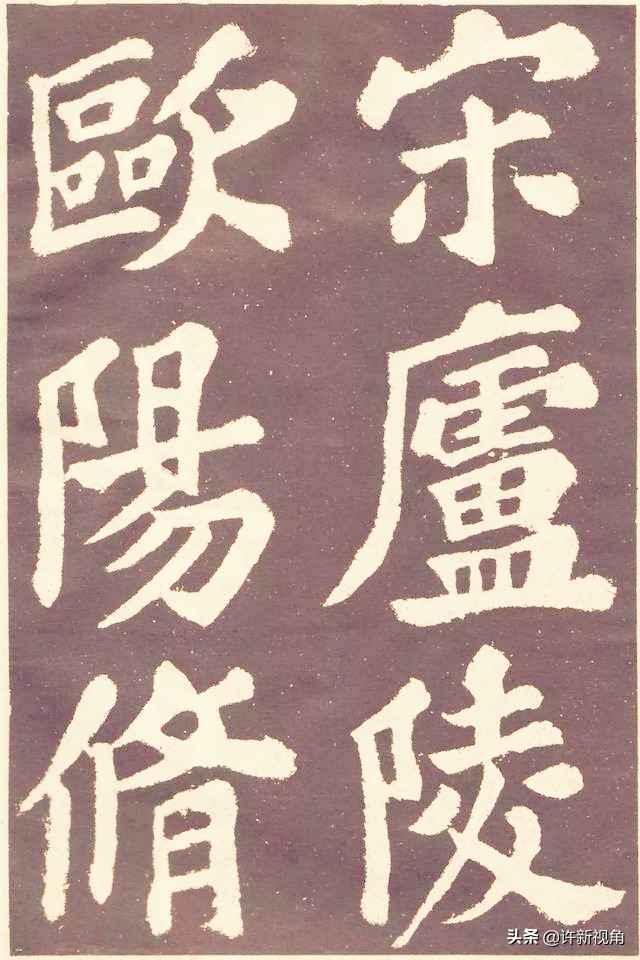 宋廬陵
歐陽脩
头条 @许新视角